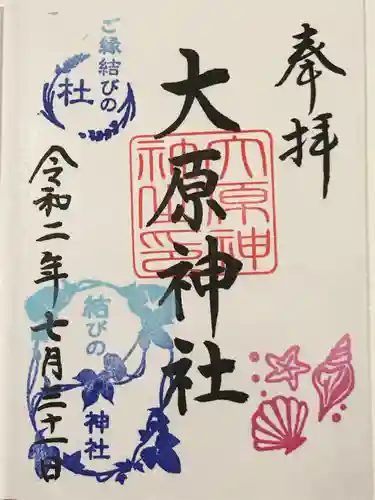 奉拝
大原神社
大原神社印
ご縁結びの
杜
結びの
神社
令和二年七月二十一日